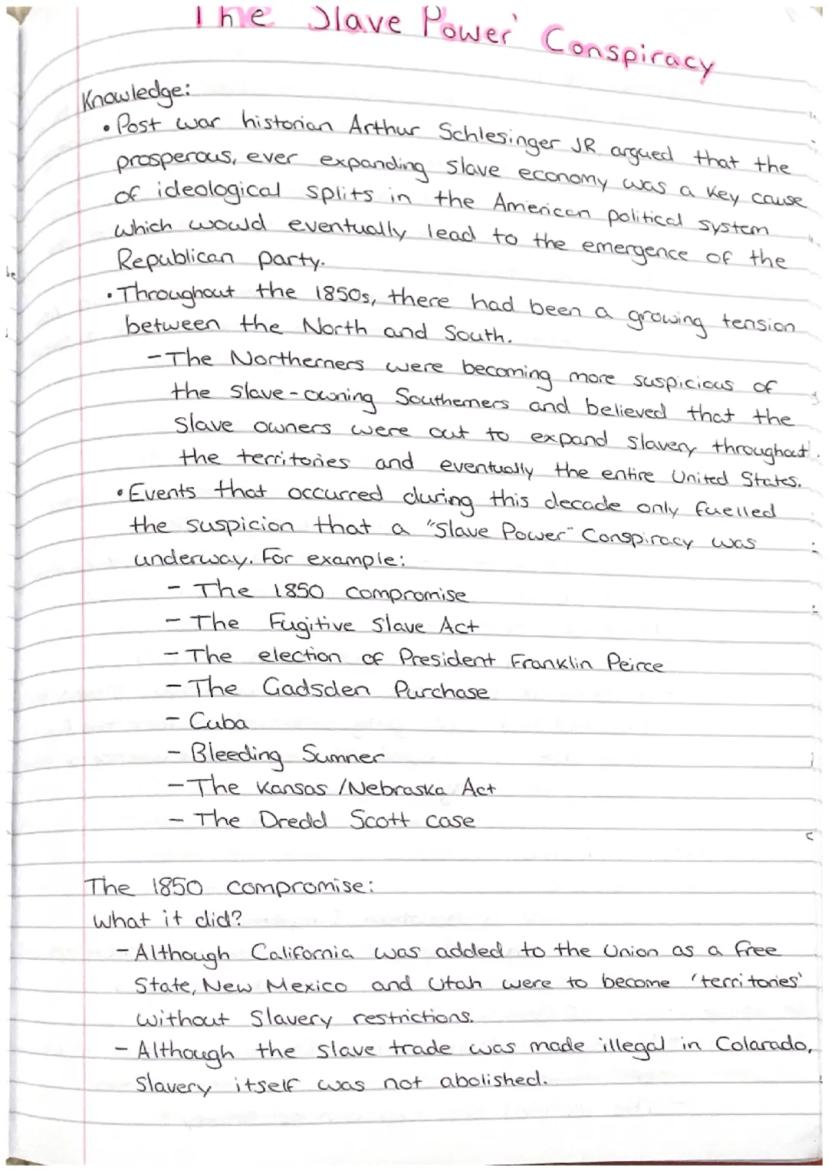 The Slave Power' Conspiracy
Knowledge:
• Post war historian Arthur Schlesinger JR argued that the
prosperous, ever expanding slave economy was a key cause
of ideological splits in the American political system
which would eventually lead to the emergence of the
Republican party.
• Throughout the 1850s, there had been a growing tension
between the North and South.
- The Northerners were becoming more suspicious of
the slave-owning Southerners and believed that the
slave owners were out to expand slavery throughout
the territories and eventually the entire United States.
• Events that occurred during this decade only fuelled
the suspicion that a "Slave Power" Conspiracy was
underway. For example:
- The 1850 compromise
- The Fugitive Slave Act
- The election of President Franklin Peirce
- The Gadsden Purchase
- Cuba
- Bleeding Sumner
- The Kansas /Nebraska Act
- The Dredd Scott case
The 1850 compromise:
what it did?
- Although California was added to the Union as a free
State, New Mexico and Utah were to become 'territories'
without Slavery restrictions.
- Although the slave trade was made illegal in Colarado,
Slavery itself was not abolished.